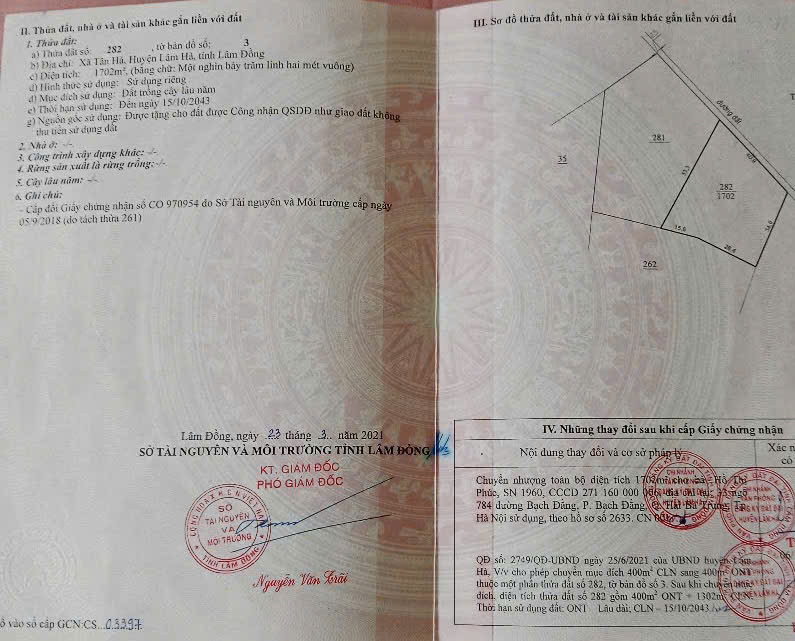 II. Thửa đất, nhà ở và tài sản khác gắn liền với đất
1. Thửa đất:
a) Thửa đất số: 282 , tờ bản đồ số: 3
b) Địa chỉ: Xã Tân Hà, Huyện Lâm Hà, tỉnh Lâm Đồng
c) Diện tích: 1702m², (bằng chữ: Một nghìn bảy trăm linh hai mét vuông)
d) Hình thức sử dụng: Sử dụng riêng
đ) Mục đích sử dụng: Đất trồng cây lâu năm
e) Thời hạn sử dụng: Đến ngày 15/10/2043
g) Nguồn gốc sử dụng: Được tặng cho đất được Công nhận QSDĐ như giao đất không
thu tiền sử dụng đất
2. Nhà ở: -/-
3. Công trình xây dựng khác: -/-
4. Rừng sản xuất là rừng trồng: -/-
5. Cây lâu năm: -/-
6. Ghi chú:
- Cấp đổi Giấy chứng nhận số CO 970954 do Sở Tài nguyên và Môi trường cấp ngày
05/9/2018 (do tách thửa 261)
Lâm Đồng, ngày 23 tháng 3 năm 2021
SỞ TÀI NGUYÊN VÀ MÔI TRƯỜNG TỈNH LÂM ĐỒNG
KT. GIÁM ĐỐC
PHÓ GIÁM ĐỐC
SỞ
TÀI NGUYÊN
VÀ
MÔI TRƯỜNG
TỈNH LÂM ĐỒNG
Nguyễn Văn Trãi
ố vào sổ cấp GCN:CS...03397
III. Sơ đồ thửa đất, nhà ở và tài sản khác gắn liền với đất
đường đất
281
35
282
1702
262
15.8
26.4
IV. Những thay đổi sau khi cấp Giấy chứng nhận
Nội dung thay đổi và cơ sở pháp lý
Xác n
có
Chuyển nhượng toàn bộ diện tích 1702m² cho bà: Hồ Thị
Phúc, SN 1960, CCCD 271 160 000 địa chỉ tại: 33 ngõ
784 đường Bạch Đằng, P. Bạch Đằng, Q. Hai Bà Trưng, TP.
Hà Nội sử dụng, theo hồ sơ số 2633. CN
QĐ số: 2749/QĐ-UBND ngày 25/6/2021 của UBND huyện Lâm
Hà. V/v cho phép chuyển mục đích 400m² CLN sang 400m² ONT
thuộc một phần thửa đất số 282, tờ bản đồ số 3. Sau khi chuyển mục
đích, diện tích thửa đất số 282 gồm 400m² ONT + 1302m² CLN.
Thời hạn sử dụng đất: ONT – Lâu dài; CLN – 15/10/2043